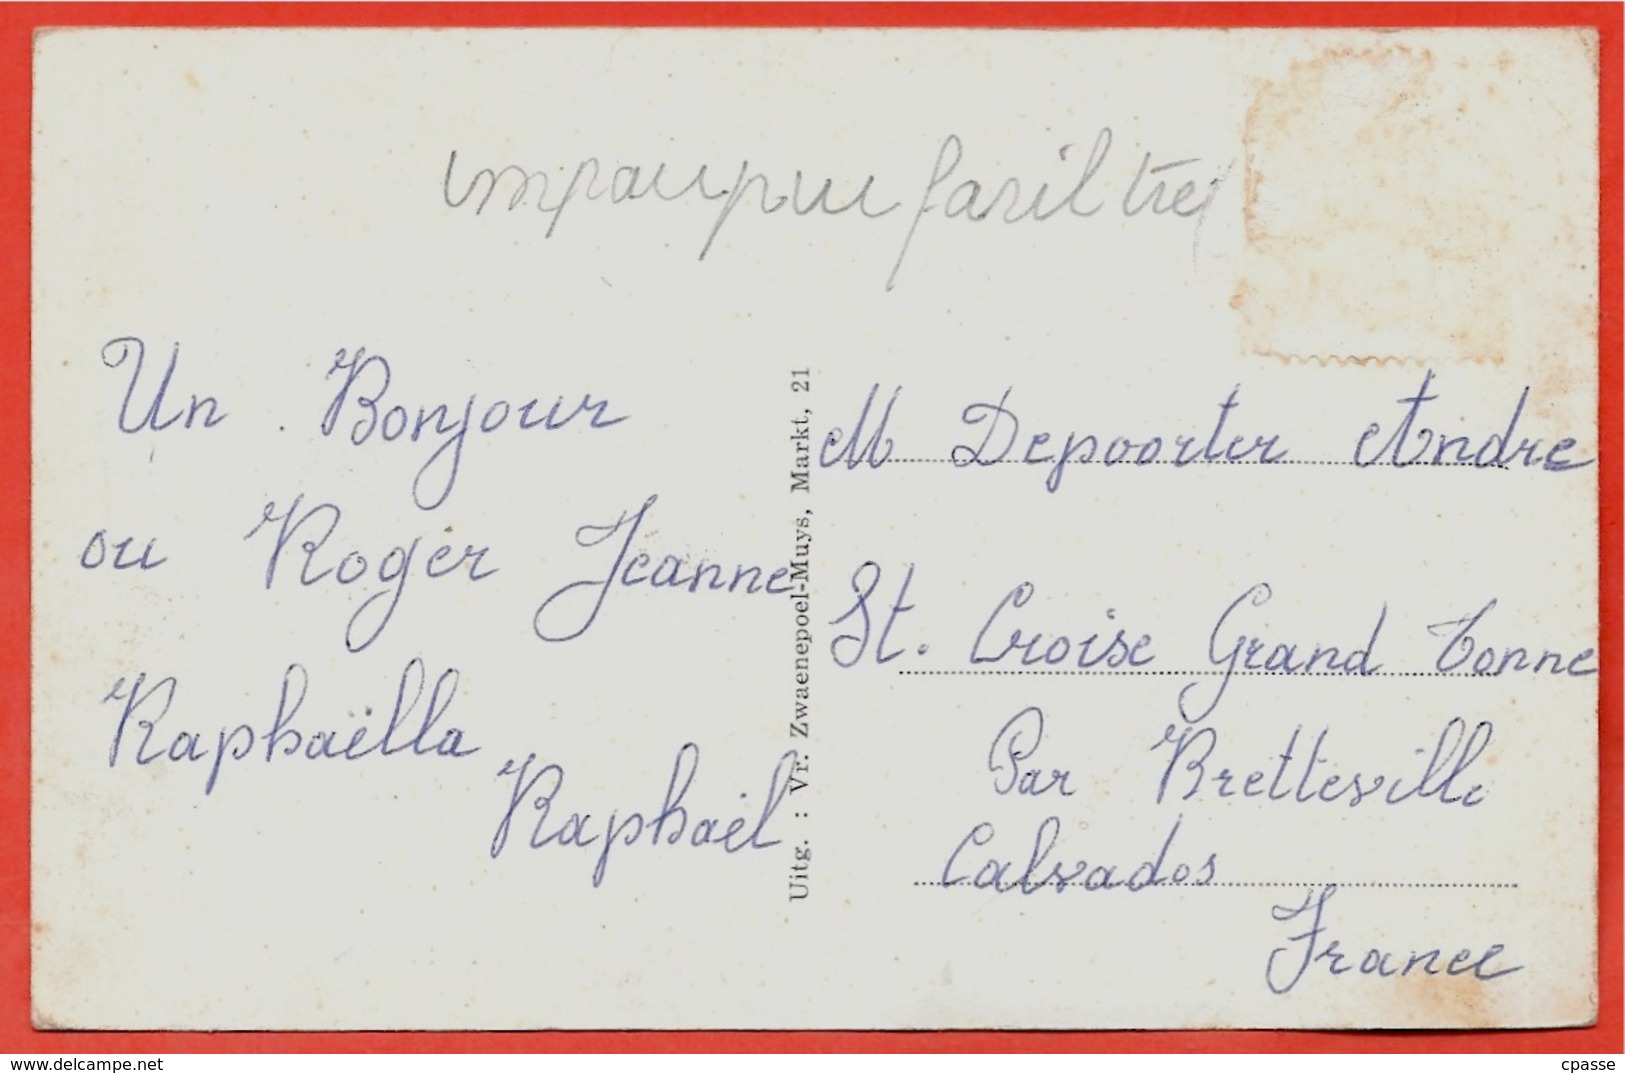 Un Bonjour
ou Roger Jeanne
Raphaëlla
Raphaël
Uitg. : Vr. Zwaenepoel-Muys, Markt, 21
M Depoorter Andre
St. Croise Grand Tonne
Par Bretteville
Calvados
France
delcampe.net
cpasse